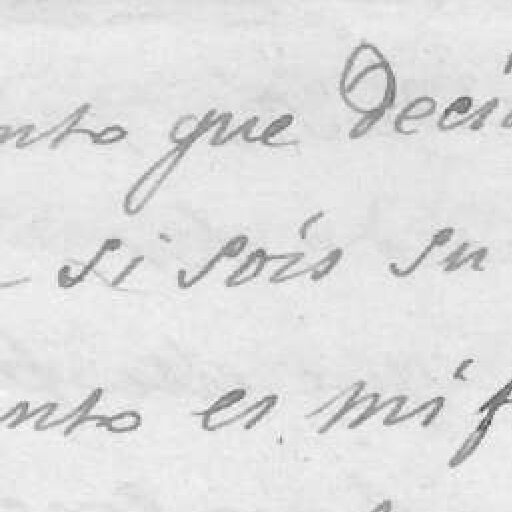 nto que Deci
si sois su
nto es mi f